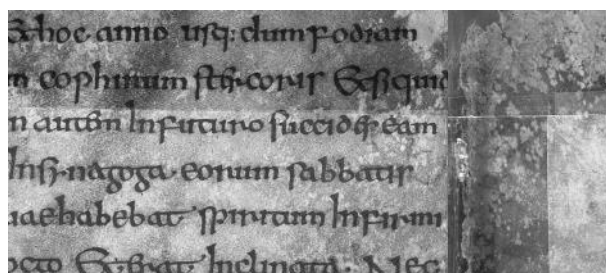 & hoc anno usq: dum fodiam
n cophinum stercoris & siquid
n autem Infuturo succides eam
Insinagoga eorum sabbatis
uae habebat spiritum Infirmi
octo & erat Inclinata. Nec